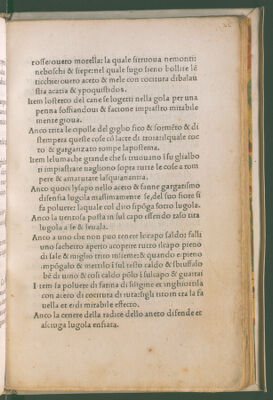 rosse ouero morella: la quale sitruoua nemonti:
neboschi & siepe: nel quale sugo sieno bollite le
ticchie: ouero aceto & mele con coctura dibalau
stia acatia & ypoquistidos.
Item losterco del cane se logetti nella gola per una
penna soffiandouï & factione impiastro mirabile
mente gioua.
Anco trita le cipolle del giglio fico & formēto & di
stempera queste cose cō lacte di troia: ilquale coc
to & garganzato rompe lapostema.
Item lelumache grande che si truouano ī su gli albo
ri impiastrate uagliono sopra tutte le cose a rom
pere & amaturare lasquinantia.
Anco quoci lysapo nello aceto & fanne gargarismo
disenfia lugola maximamente se, del suo fiore si
fa poluere: laquale col dito si pōga sotto lugola.
Anco la uentosa posta in sul capo essendo raso tira
lugola a se & lenala.
Anco a uno che non puo tenere ilcapo saldo: falli
uno sachetto aperto acoprire tutto ilcapo pieno
di sale & miglio trito insieme: & quando e pieno
impūgalo & mettilo ī sul testo caldo & sbruffalo
bē di uino & cosi caldo pōlo ī sul capo & guarra
Item fa poluere di farina di filigine et inghiottila
con aceto di coctura di ruta: fagli ritornare la fa
uella et e di mirabile effecto.
Anco la cenere della radice dello aneto disende et
asciuga lugola enfiata.